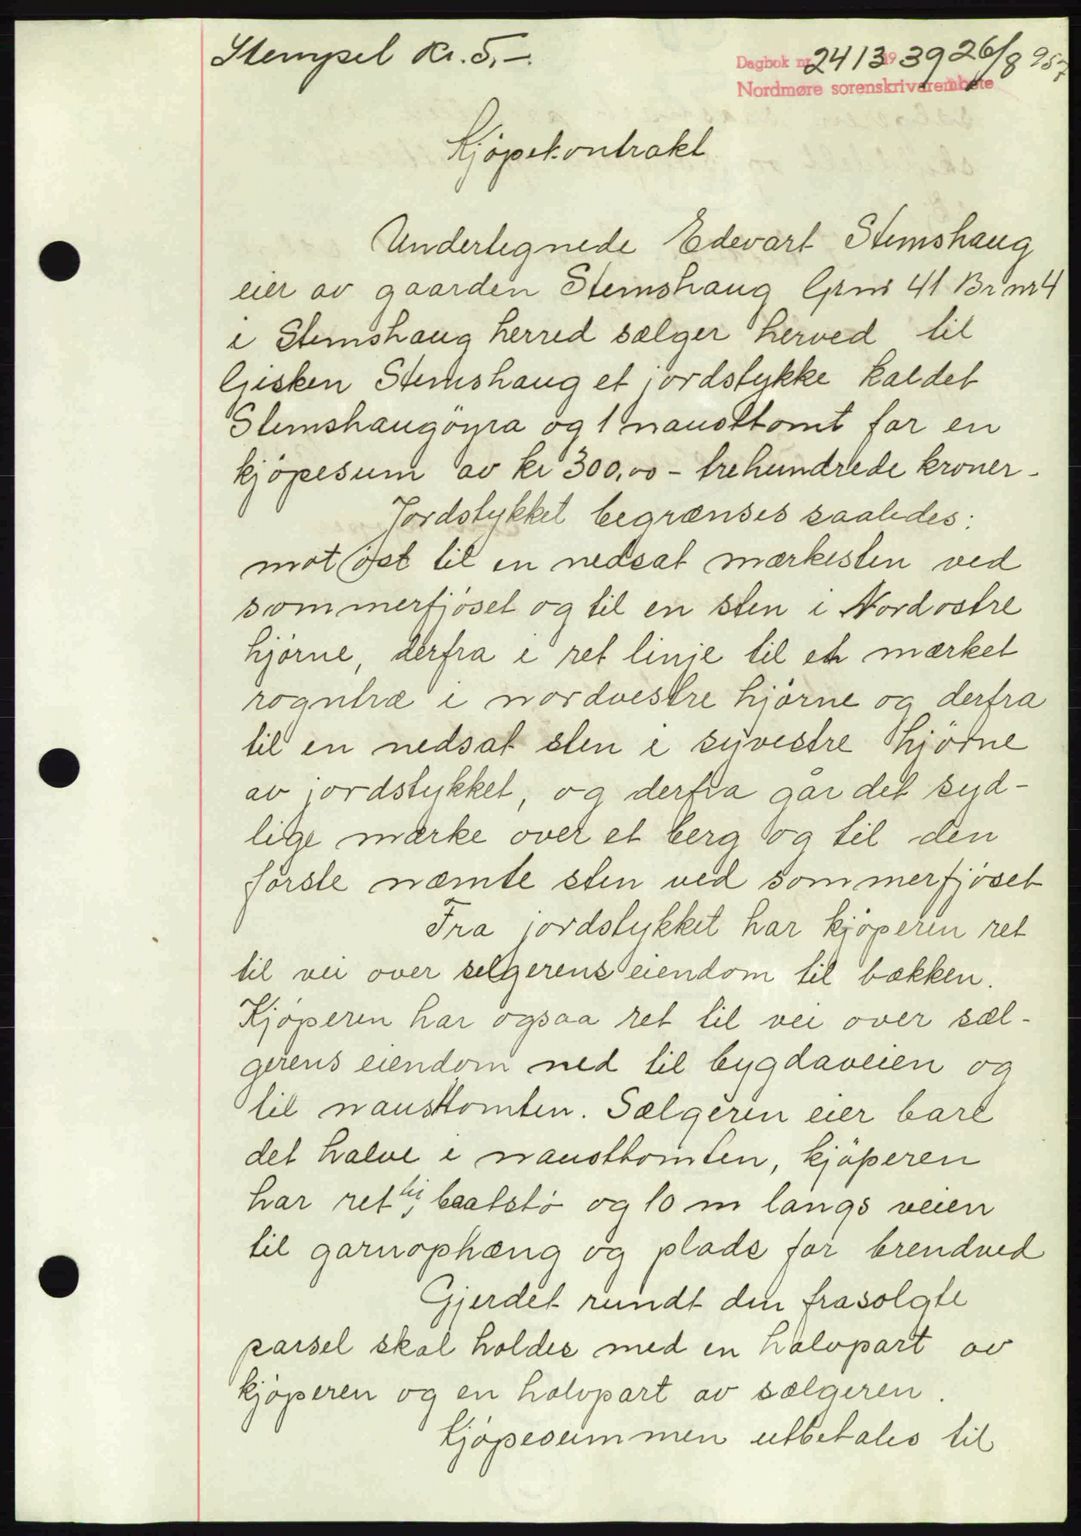 Stempel kr. 5,-.
Dagbok nr. 2413 1939 26/8 957
Nordmøre sorenskriverembete
Kjøpekontrakt
Undertegnede Edevart Stemshaug
eier av gaarden Stemshaug Grnr 41 Br nr 4
i Stemshaug herred sælger herved til
Gisken Stemshaug et jordstykke kaldet
Stemshaugöyra og 1 nausttomt for en
kjøpesum av kr 300,00 – trehundrede kroner –
Jordstykket begrænses saaledes:
mot øst til en nedsat mærkesten ved
sommerfjøset og til en sten i Nordostre
hjørne, derfra i ret linje til et mærket
rogntræ i nordvestre hjørne og derfra
til en nedsat sten i syvestre hjørne
av jordstykket, og derfra går det syd-
lige mærke over et berg og til den
første næmte sten ved sommerfjøset
Fra jordstykket har kjøperen ret
til vei over selgerens eiendom til bækken.
Kjøperen har ogsaa ret til vei over sæl-
gerens eiendom ned til bygdaveien og
til nausttomten. Sælgeren eier bare
det halve i nausttomten, kjøperen
har ret til baatstø og 10 m langs veien
til garnophæng og plads for brendved
Gjerdet rundt den frasolgte
parsel skal holdes med en halvpart av
kjøperen og en halvpart av sælgeren.
Kjøpesummen utbetales til